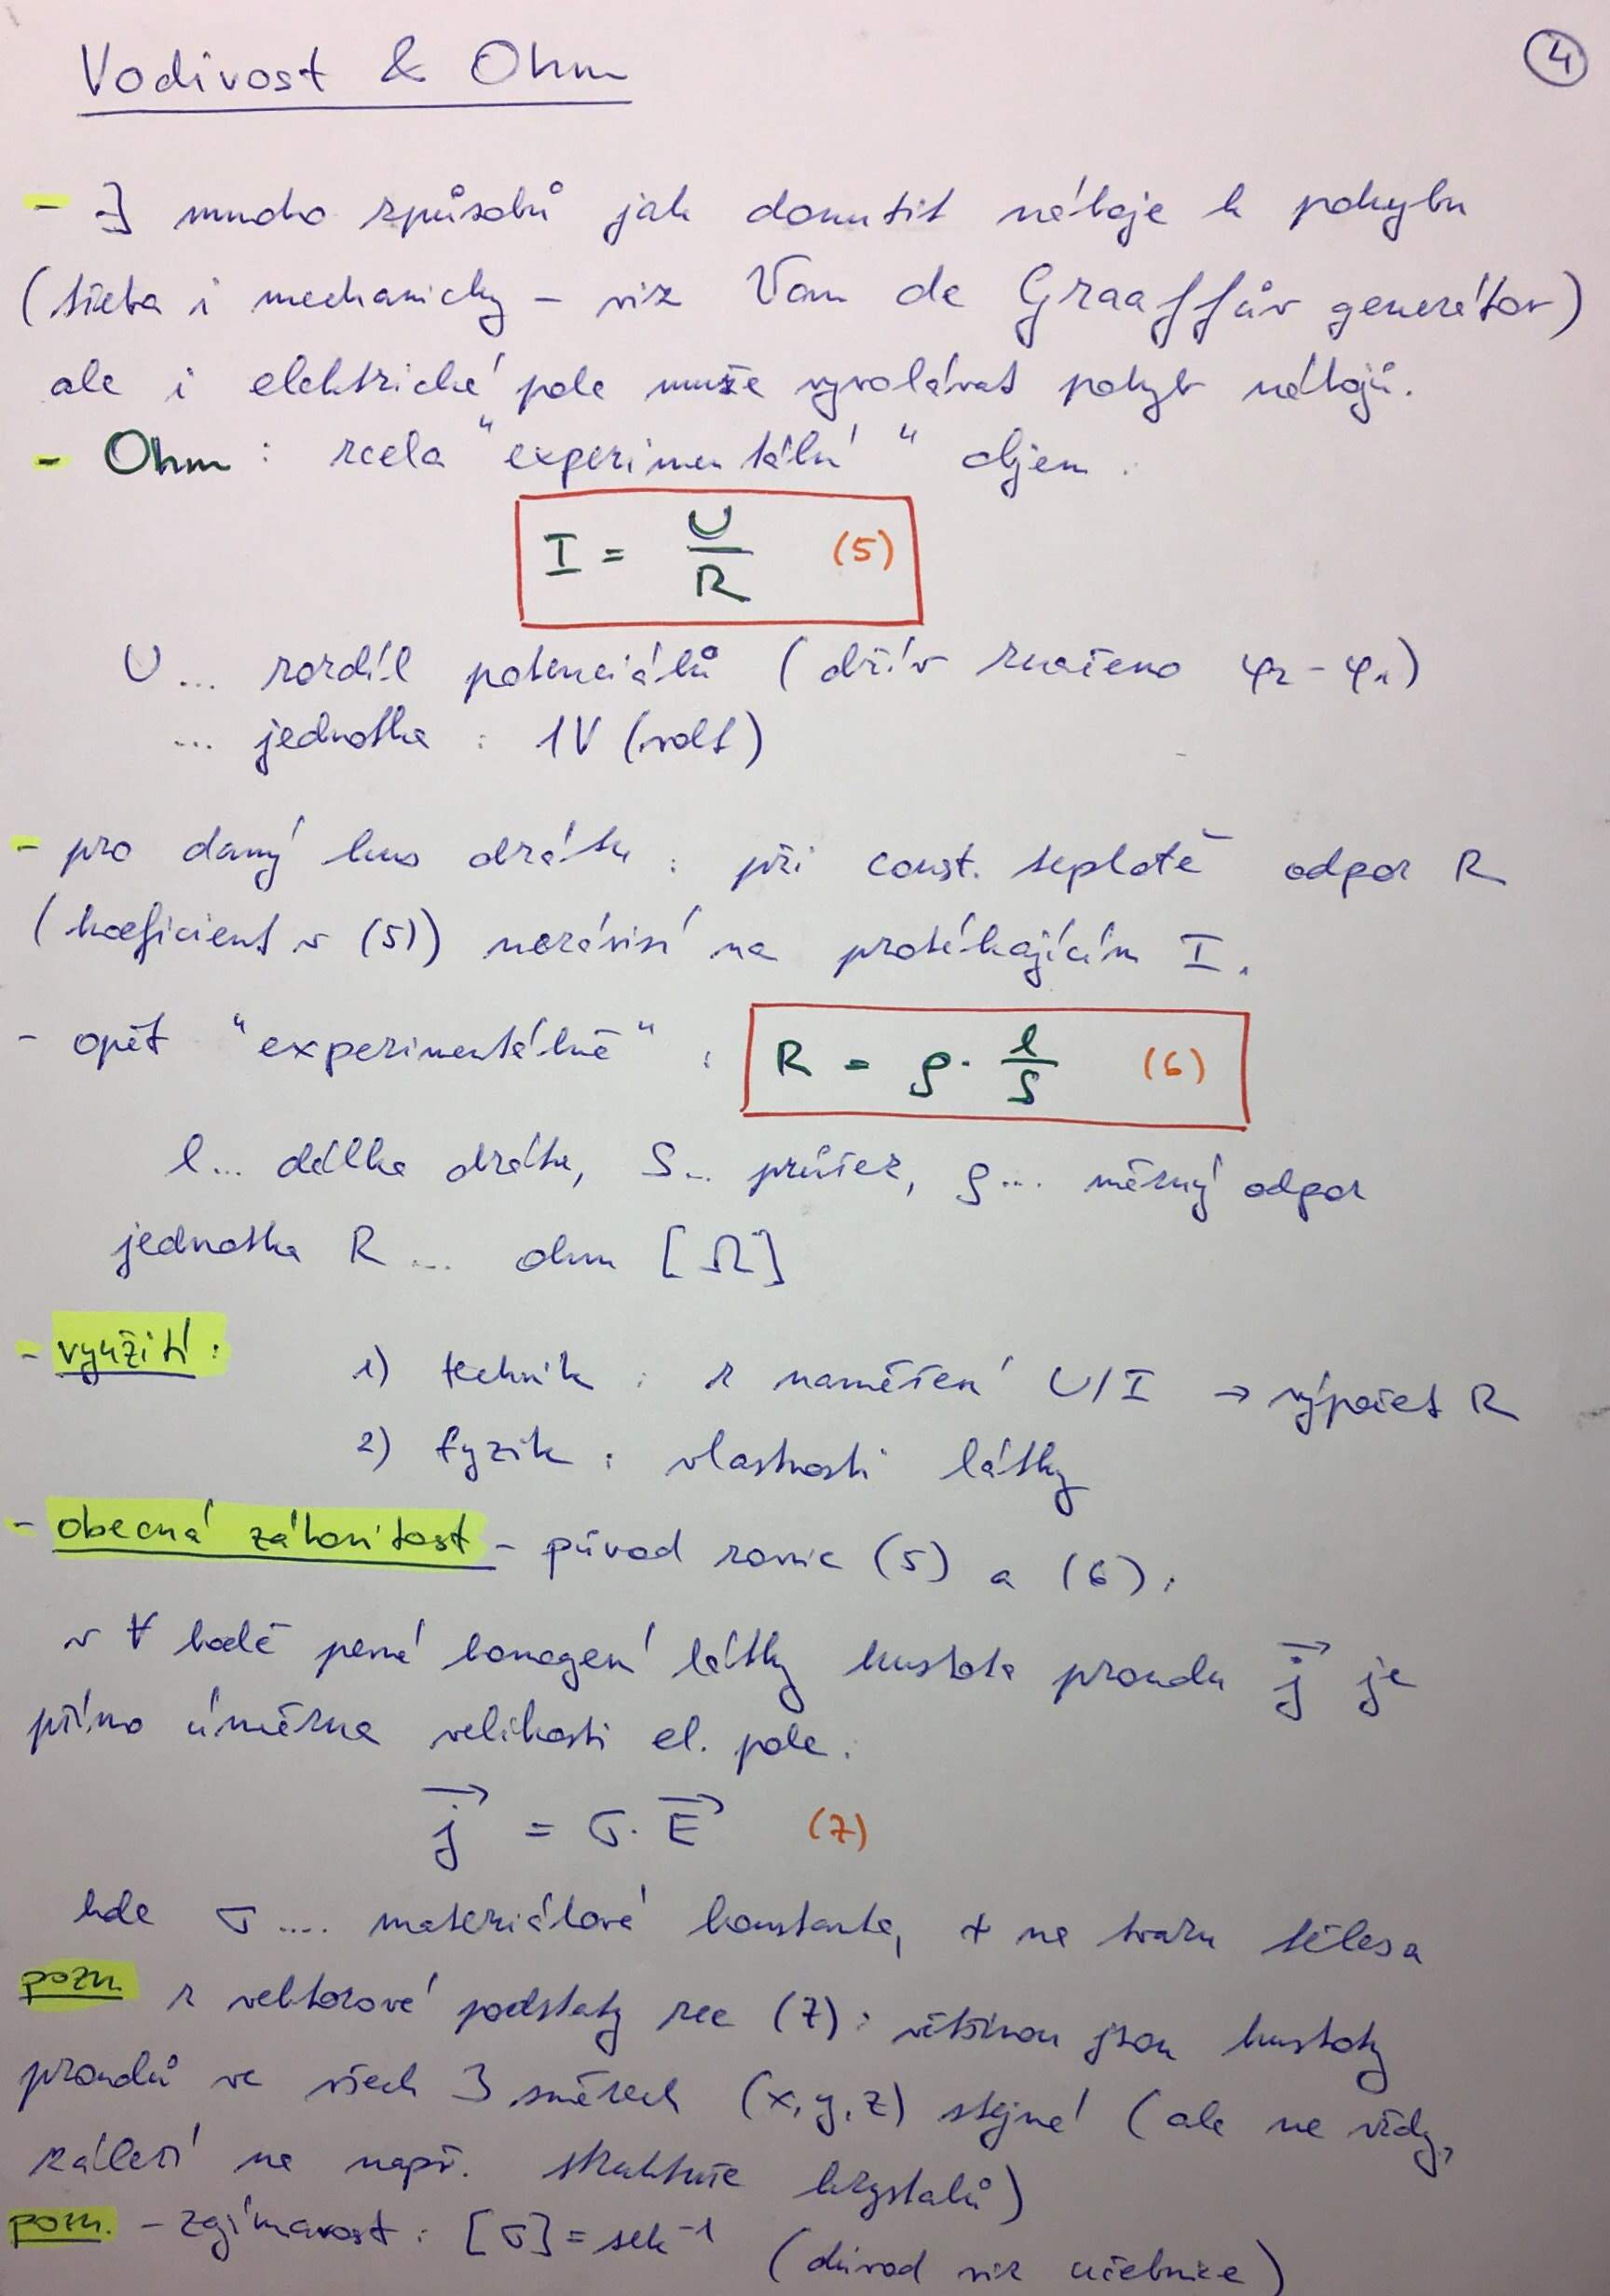 Vodivost & Ohm
4
- ∃ mnoho způsobů jak donutit náboje k pohybu
(třeba i mechanicky – viz Van de Graaffův generátor)
ale i elektrické pole může vyvolávat pohyb nábojů.
- Ohm : zcela "experimentální" objem :
I = U/R (5)
U ... rozdíl potenciálů (dřív značeno φ₂ - φ₁)
... jednotka : 1V (volt)
- pro daný kus drátu : při const. teplotě odpor R
(koeficient v (5)) nezávisí na protékajícím I.
- opět "experimentálně" : R = ρ · l/S (6)
l... délka drátu, S... průřez, ρ... měrný odpor
jednotka R ... ohm [Ω]
- využití : 1) technik : z naměření U/I → výpočet R
2) fyzik : vlastnosti látky
- obecná zákonitost - původ rovnic (5) a (6) :
v ∀ bodě pevné homogení látky hustota proudu j⃗ je
přímo úměrna velikosti el. pole.
j⃗ = σ · E⃗ (7)
kde σ .... materiálová konstanta, ≠ na tvaru tělesa
pozn. z vektorové podstaty rce (7) : většinou jsou hustoty
proudů ve všech 3 směrech (x, y, z) stejné (ale ne vždy,
záleží na např. struktuře krystalů)
pozn. - zajímavost : [σ] = sek⁻¹ (důvod viz učebnice)